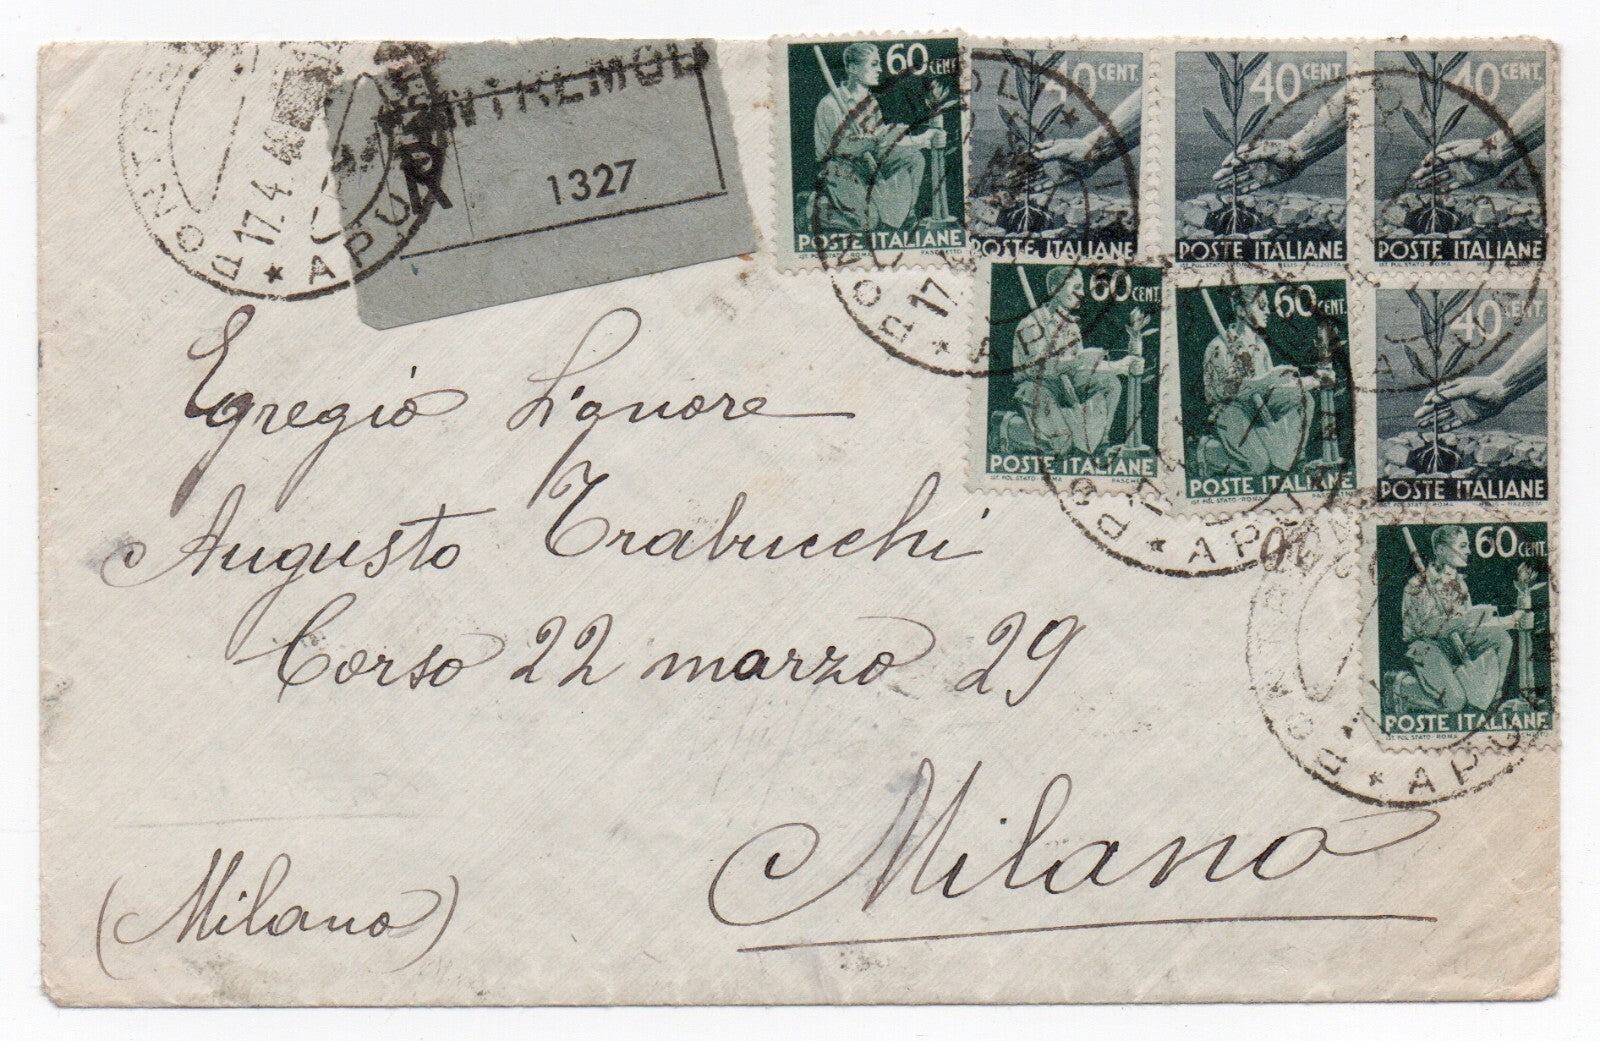 PONTREMOLI
R
1327
PONTREMOLI
17.4
* APUANIA
60 CENT.
POSTE ITALIANE
40 CENT.
POSTE ITALIANE
40 CENT.
POSTE ITALIANE
40 CENT.
POSTE ITALIANE
60 CENT.
POSTE ITALIANE
60 CENT.
POSTE ITALIANE
40 CENT.
POSTE ITALIANE
60 CENT.
POSTE ITALIANE
PONTREMOLI *
17.
* APUANIA
Egregio Signore
Augusto Trabucchi
Corso 22 marzo 29
Milano
(Milano)